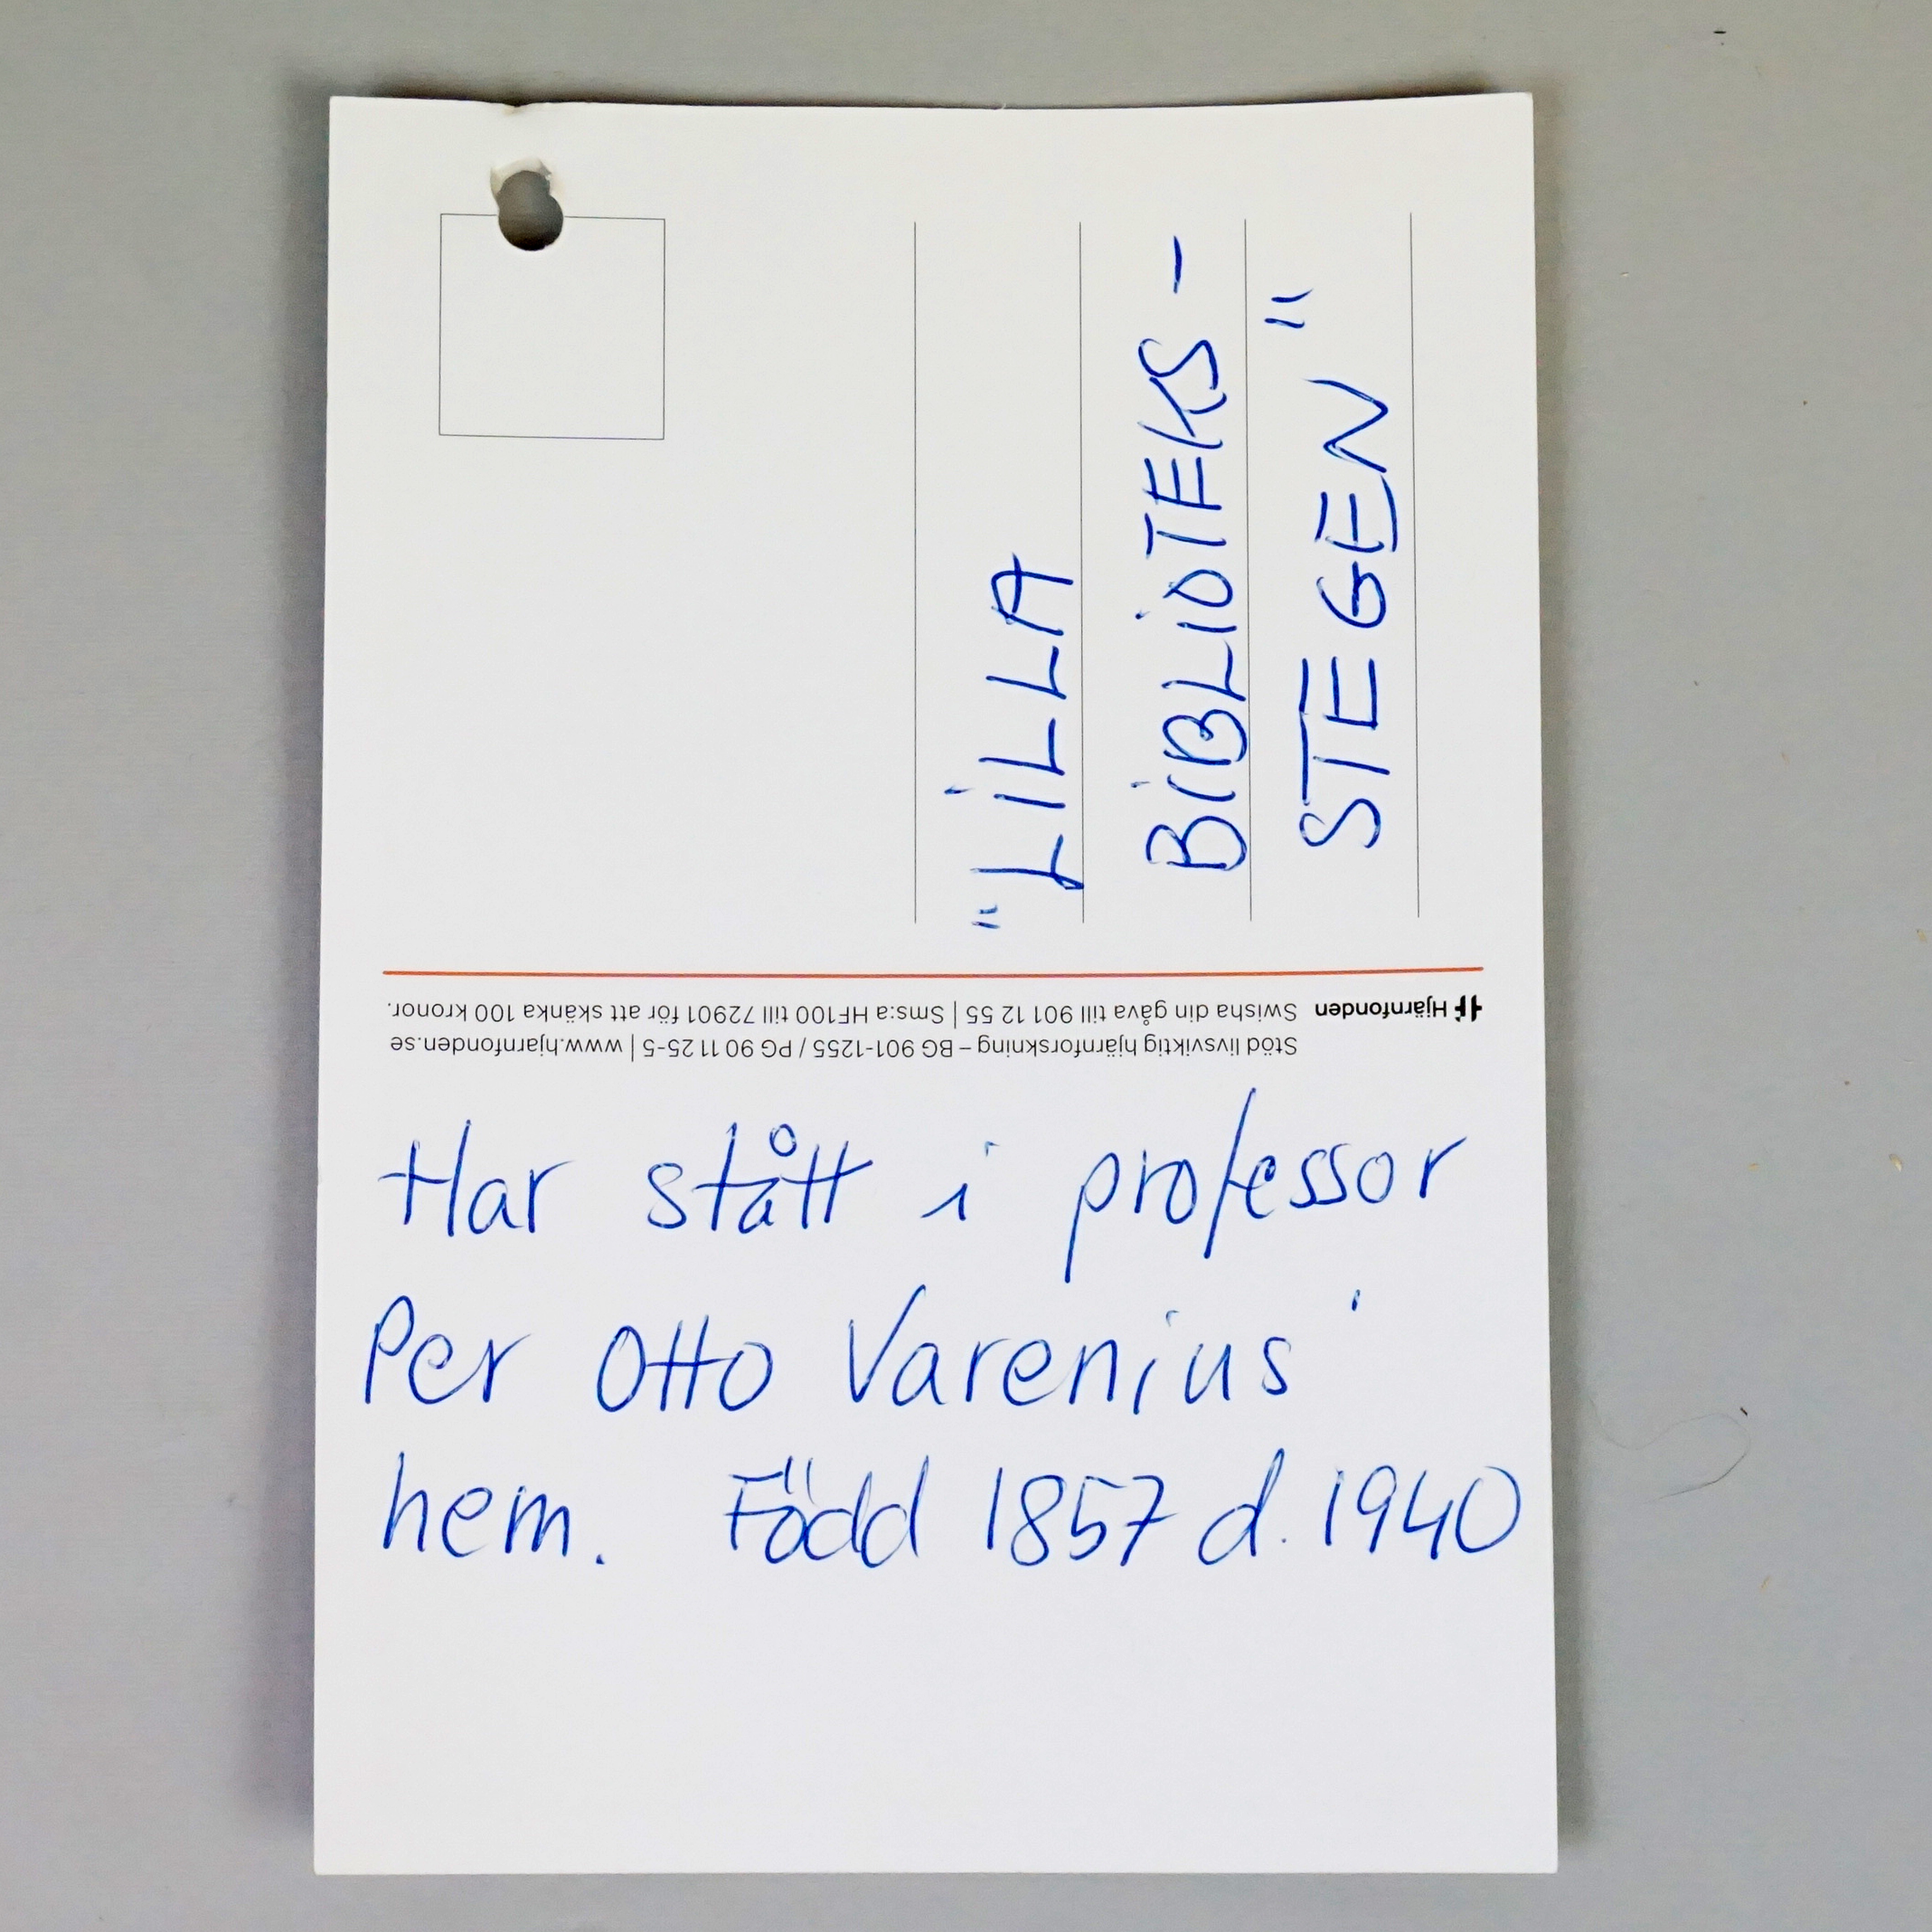 "LiLLA
BiBLiOTEKS-
STEGEN"
Hjärnfonden Swisha din gåva till 901 12 55 | Sms:a HF100 till 72901 för att skänka 100 kronor.
Stöd livsviktig hjärnforskning – BG 901-1255 / PG 90 11 25-5 | www.hjarnfonden.se
Har stått i professor
Per Otto Varenius'
hem. Född 1857 d. 1940